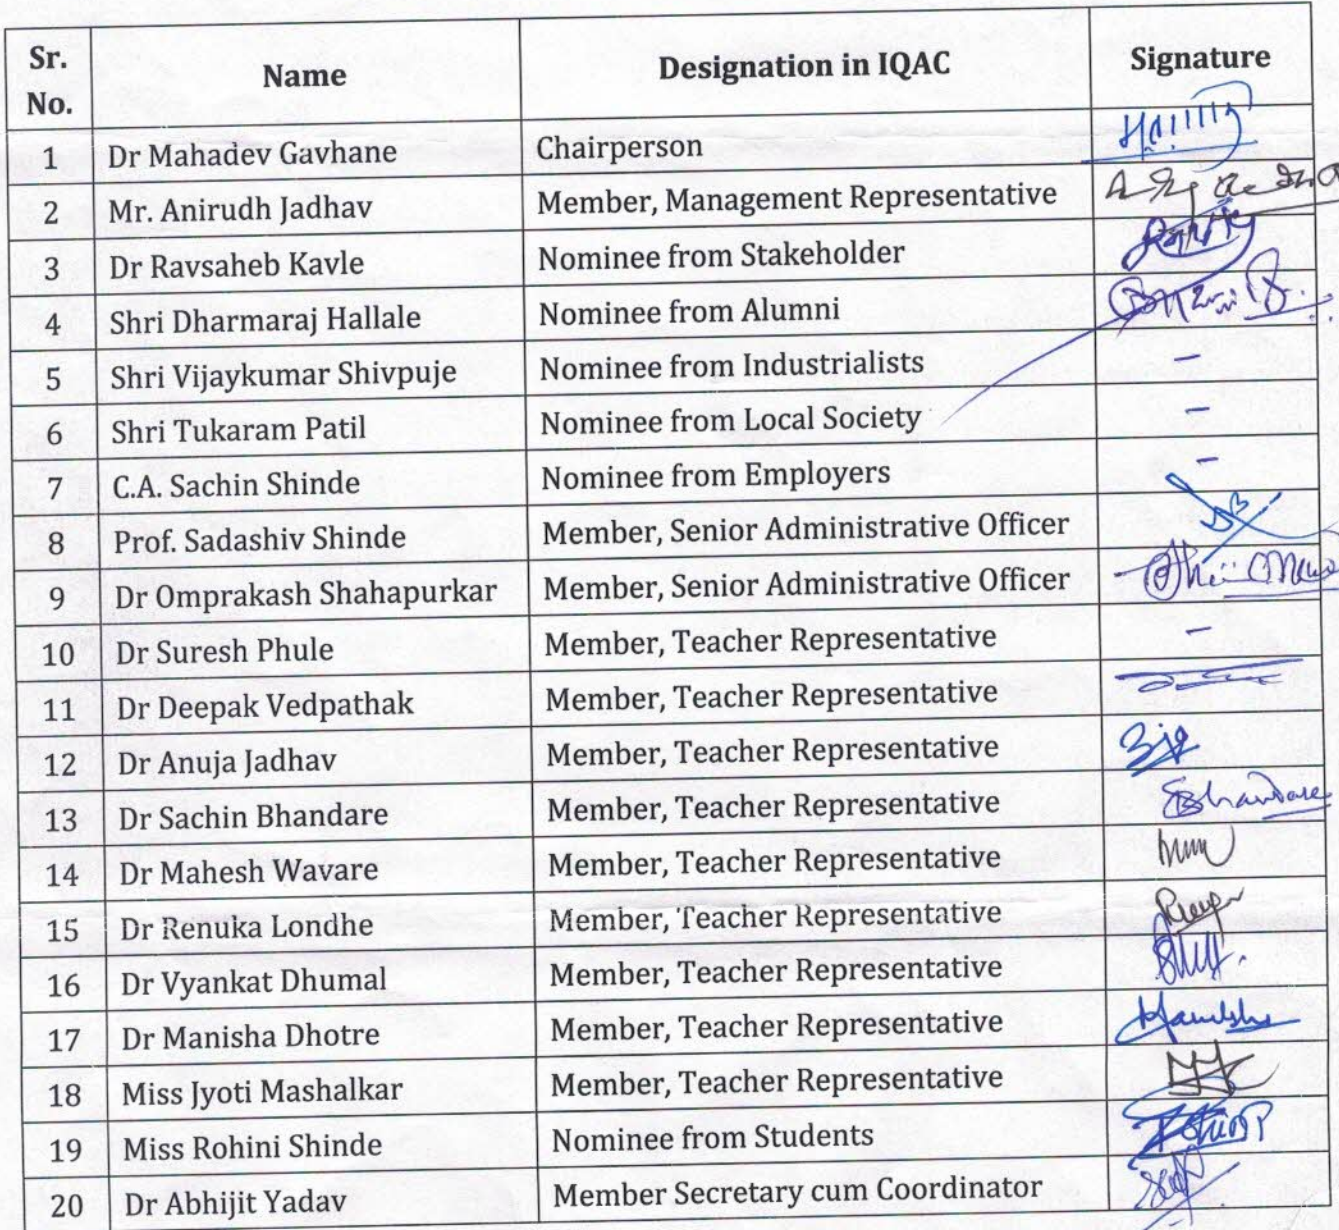 Sr. No. Name Designation in IQAC Signature
1 Dr Mahadev Gavhane Chairperson
2 Mr. Anirudh Jadhav Member, Management Representative
3 Dr Ravsaheb Kavle Nominee from Stakeholder
4 Shri Dharmaraj Hallale Nominee from Alumni
5 Shri Vijaykumar Shivpuje Nominee from Industrialists -
6 Shri Tukaram Patil Nominee from Local Society -
7 C.A. Sachin Shinde Nominee from Employers -
8 Prof. Sadashiv Shinde Member, Senior Administrative Officer
9 Dr Omprakash Shahapurkar Member, Senior Administrative Officer
10 Dr Suresh Phule Member, Teacher Representative -
11 Dr Deepak Vedpathak Member, Teacher Representative
12 Dr Anuja Jadhav Member, Teacher Representative
13 Dr Sachin Bhandare Member, Teacher Representative SBhandare
14 Dr Mahesh Wavare Member, Teacher Representative
15 Dr Renuka Londhe Member, Teacher Representative
16 Dr Vyankat Dhumal Member, Teacher Representative
17 Dr Manisha Dhotre Member, Teacher Representative
18 Miss Jyoti Mashalkar Member, Teacher Representative
19 Miss Rohini Shinde Nominee from Students
20 Dr Abhijit Yadav Member Secretary cum Coordinator